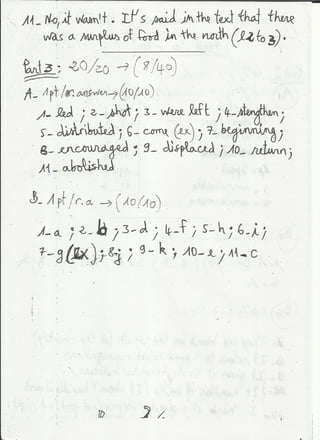 11_ No, it wasn't. It's said in the text that there
was a surplus of food in the north (l2 to 3).
Part 3: 20/20 → (8/40)
A_ 1pt /r. answer → (10/10)
1_ led ; 2_ shot ; 3_ were left ; 4_ stengthen ;
5_ distributed ; 6_ come (ex) ; 7_ beginning ;
8_ encouraged ; 9_ displaced ; 10_ return ;
11_ abolished
B_ 1pt / r.a → (10/10)
1_a ; 2_b ; 3-d ; 4-f ; 5-h ; 6-i ;
7-g (ex) ; 8-j ; 9-k ; 10-e ; 11-c